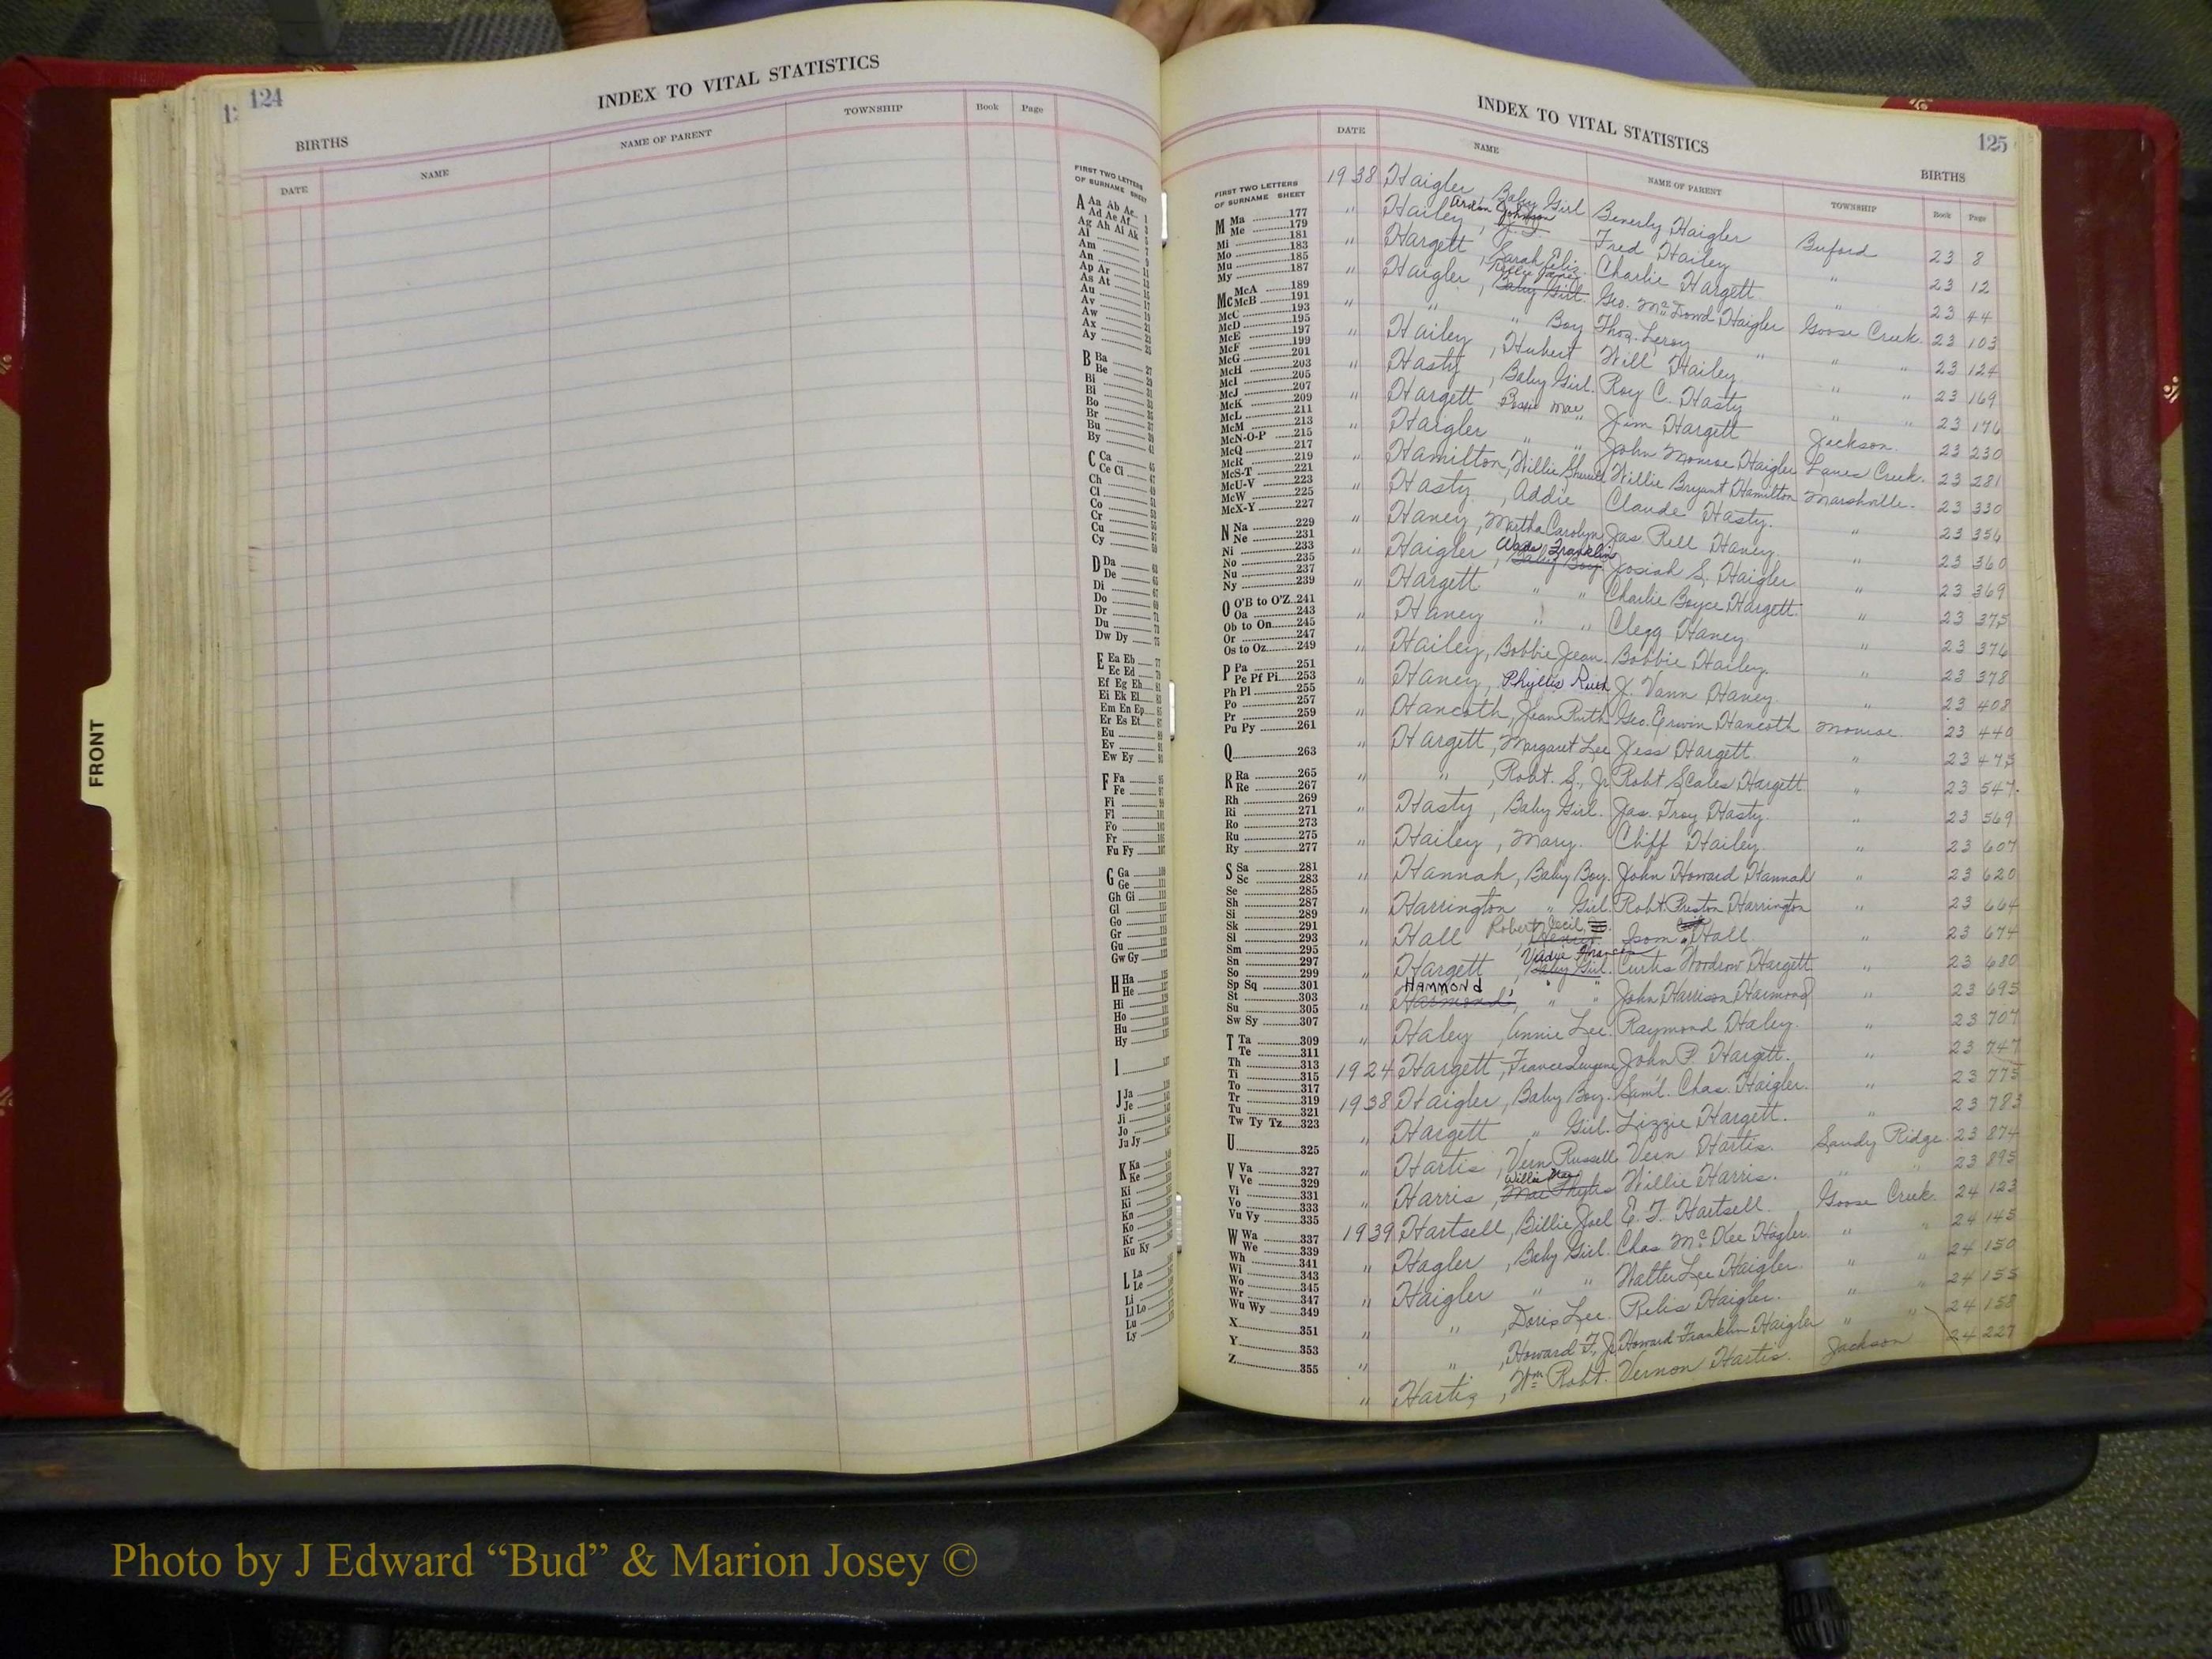 124
INDEX TO VITAL STATISTICS
BIRTHS
DATE NAME NAME OF PARENT TOWNSHIP Book Page
FIRST TWO LETTERS
OF SURNAME SHEET
A Aa Ab Ac
Ad Ae Af
Ag Ah Ai Ak
Al
Am
An
Ap Ar
As At
Au
Av
Aw
Ax
Ay
B Ba
Be
Bi
Bl
Bo
Br
Bu
By
C Ca
Ce Ci
Ch
Cl
Co
Cr
Cu
Cy
D Da
De
Di
Do
Dr
Du
Dw Dy
E Ea Eb
Ec Ed
Ef Eg Eh
Ei Ek El
Em En Ep
Er Es Et
Eu
Ev
Ew Ey
F Fa
Fe
Fi
Fl
Fo
Fr
Fu Fy
G Ga
Ge
Gh Gi
Gl
Go
Gr
Gu
Gw Gy
H Ha
He
Hi
Ho
Hu
Hy
I
J Ja
Je
Ji
Jo
Ju Jy
K Ka
Ke
Ki
Kn
Ko
Kr
Ku Ky
L La
Le
Li
Ll Lo
Lu
Ly
FRONT
INDEX TO VITAL STATISTICS
125
BIRTHS
DATE NAME NAME OF PARENT TOWNSHIP Book Page
FIRST TWO LETTERS
OF SURNAME SHEET
M Ma 177
Me 179
Mi 181
Mo 183
Mu 185
My 187
Mc McA 189
McB 191
McC 193
McD 195
McE 197
McF 199
McG 201
McH 203
McI 205
McJ 207
McK 209
McL 211
McM 213
McN-O-P 215
McQ 217
McR 219
McS-T 221
McU-V 223
McW 225
McX-Y 227
N Na 229
Ne 231
Ni 233
No 235
Nu 237
Ny 239
O O'B to O'Z 241
Oa 243
Ob to On 245
Or 247
Os to Oz 249
P Pa 251
Pe Pf Pi 253
Ph Pl 255
Po 257
Pr 259
Pu Py 261
Q 263
R Ra 265
Re 267
Rh 269
Ri 271
Ro 273
Ru 275
Ry 277
S Sa 281
Sc 283
Se 285
Sh 287
Si 289
Sk 291
Sl 293
Sm 295
Sn 297
So 299
Sp Sq 301
St 303
Su 305
Sw Sy 307
T Ta 309
Te 311
Th 313
Ti 315
To 317
Tr 319
Tu 321
Tw Ty Tz 323
U 325
V Va 327
Ve 329
Vi 331
Vo 333
Vu Vy 335
W Wa 337
We 339
Wh 341
Wi 343
Wo 345
Wr 347
Wu Wy 349
X 351
Y 353
Z 355
1938 Haigler, Baby Girl Beverly Haigler Buford 23 8
" Hailey, Johnson Fred Hailey " 23 12
" Hargett, Sarah Eliz. Charlie Hargett " 23 44
" Haigler, Baby Girl. Geo. McDowd Haigler Goose Creek. 23 103
" " " Boy Thos. Leroy " " " 23 124
" Hailey, Hubert Will Hailey " " 23 169
" Hasty, Baby Girl. Roy C. Hasty " " 23 176
" Hargett Bessie Mae Jim Hargett Jackson. 23 230
" Haigler " " John Monroe Haigler Lanes Creek. 23 281
" Hamilton, Willie Willie Bryant Hamilton Marshville. 23 330
" Hasty, Addie Claude Hasty. " 23 356
" Haney, Martha Carolyn Jas. Rell Haney " 23 360
" Haigler, Wade Franklin Baby Boy. Josiah S. Haigler " 23 369
" Hargett " " Charlie Boyce Hargett. " 23 375
" Haney " " Clegg Haney " 23 376
" Hailey, Bobbie Jean. Bobbie Hailey. " 23 378
" Haney, Phyllis Ruth J. Vann Haney " 23 408
" Hancoth, Jean Ruth Geo. Erwin Hancoth Monroe. 23 440
" Hargett, Margaret Lee Jess Hargett. " 23 475
" " , Robt. S., Jr Robt Scales Hargett " 23 547
" Hasty, Baby Girl. Jas. Troy Hasty. " 23 569
" Hailey, Mary. Cliff Hailey. " 23 607
" Hannah, Baby Boy. John Howard Hannah " 23 620
" Harrington " Girl. Robt. Preston Harrington " 23 664
" Hall Robert Cecil Isom Hall " 23 674
" Hargett, Baby Girl. Curtis Woodrow Hargett " 23 680
" HAMMOND, Harmond, " " John Harrison Harmond " 23 695
" Haley, Annie Lee. Raymond Haley. " 23 707
1924 Hargett, John P. Hargett. " 23 747
1938 Haigler, Baby Boy. Saml. Chas. Haigler. " 23 775
" Hargett " Girl. Lizzie Hargett. " 23 783
" Hartis, Vern Russell Vern Hartis. Sandy Ridge. 23 874
" Harris, Willie Mae Willie Harris. " " 23 895
1939 Hartsell, Billie Joel E. T. Hartsell. Goose Creek. 24 123
" Hagler, Baby Girl. Chas McKee Hagler. " " 24 145
" Haigler " " Walter Lee Haigler. " " 24 150
" " , Doris Lee. Relis Haigler. " " 24 155
" " , Howard F. Jr Howard Franklin Haigler " " 24 158
" Hartis, Wm Robt. Vernon Hartis. Jackson 24 227
Photo by J Edward “Bud” & Marion Josey ©